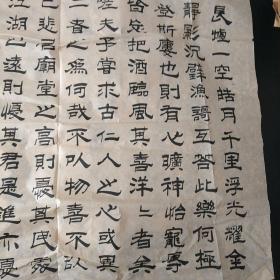 長煙一空皓月千里浮光耀金
靜影沉璧漁謌互答此樂何極
登斯樓也則有心曠神怡寵辱
皆忘把酒臨風其喜洋〻者矣
嗟夫予嘗求古仁人之心或異
二者之為何哉不以物喜不以
己悲居廟堂之高則憂其民處
江湖之遠則憂其君是進亦憂